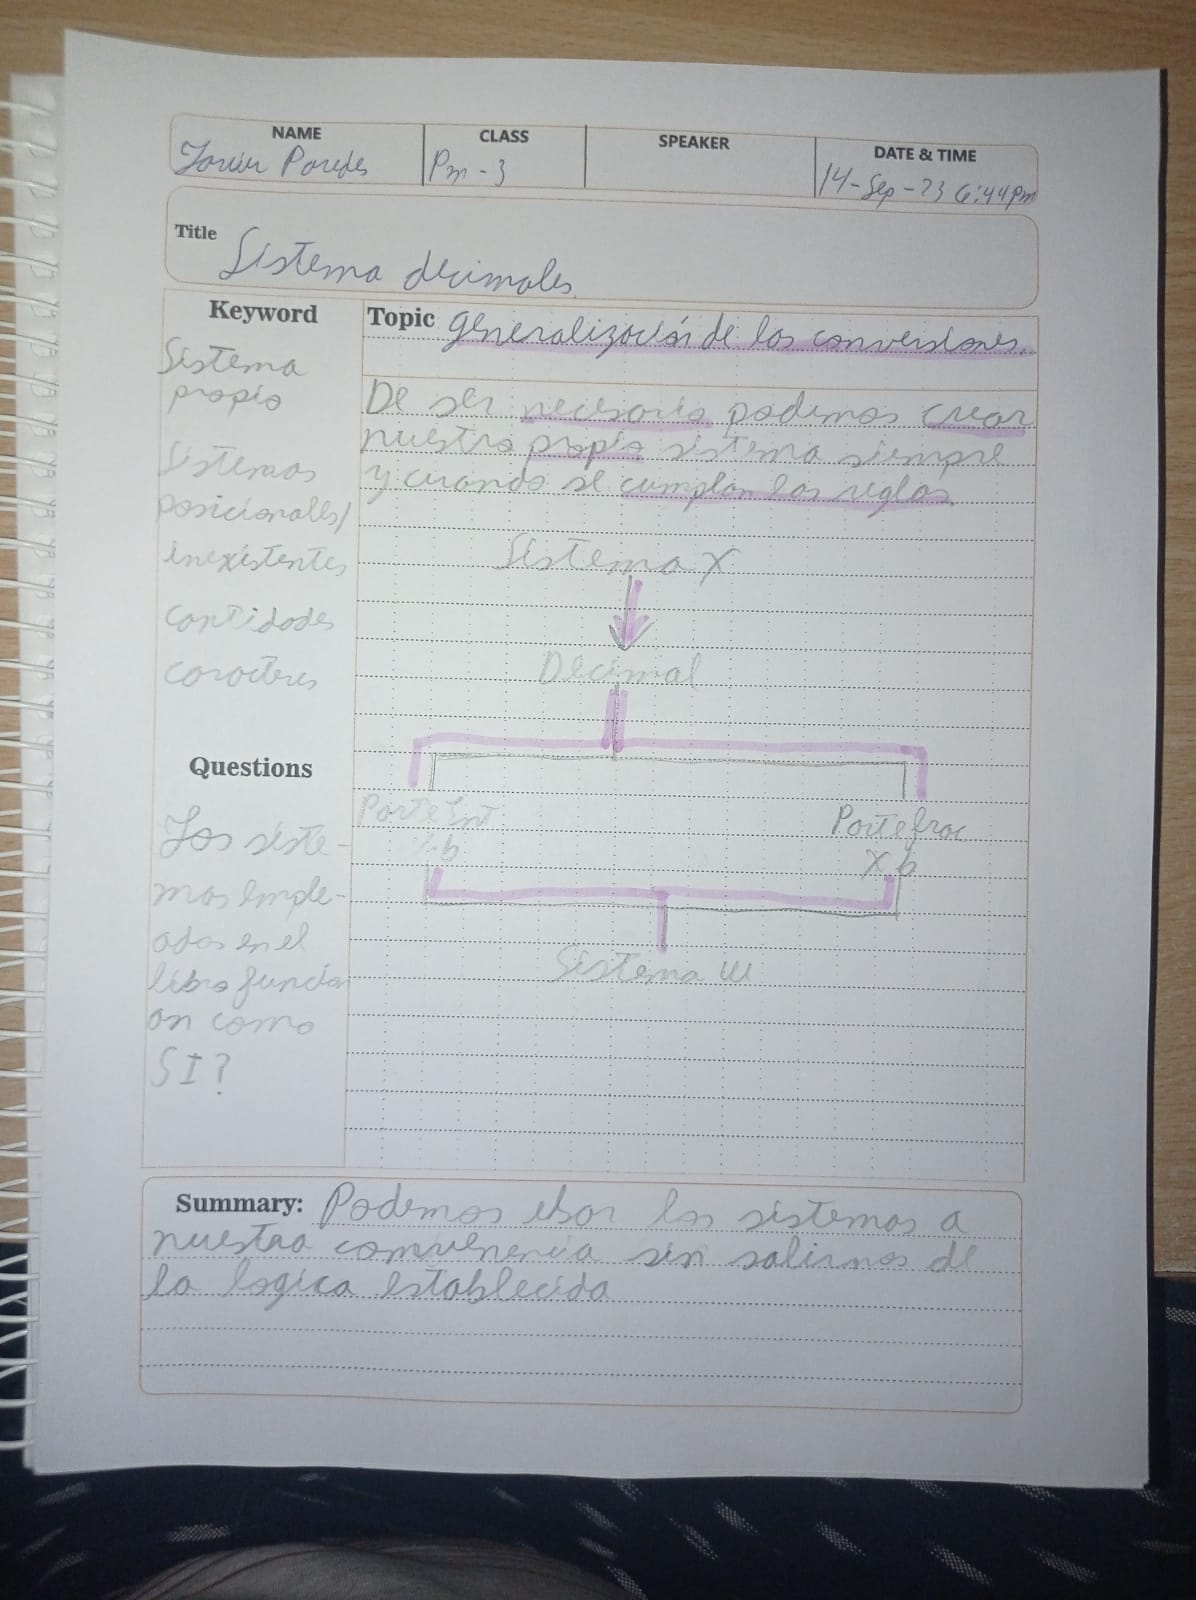 NAME
CLASS
SPEAKER
DATE & TIME
Javier Paredes
Pm - 3
14-Sep-23 6:44pm
Title Sistema decimales
Keyword
Sistema
propio
Sistemas
posicionales/
inexistentes
cantidades
caracteres
Questions
Los siste-
mas emple-
ados en el
libro funcion
an como
SI?
Topic generalización de las conversiones.
De ser necesario podemos crear
nuestro propio sistema siempre
y cuando se cumplan las reglas.
Sistema X
Decimal
Parte Int
Parte frac
÷ b
X b
Sistema
Summary: Podemos usar los sistemas a
nuestra convenencia sin salirnos de
la logica establecida